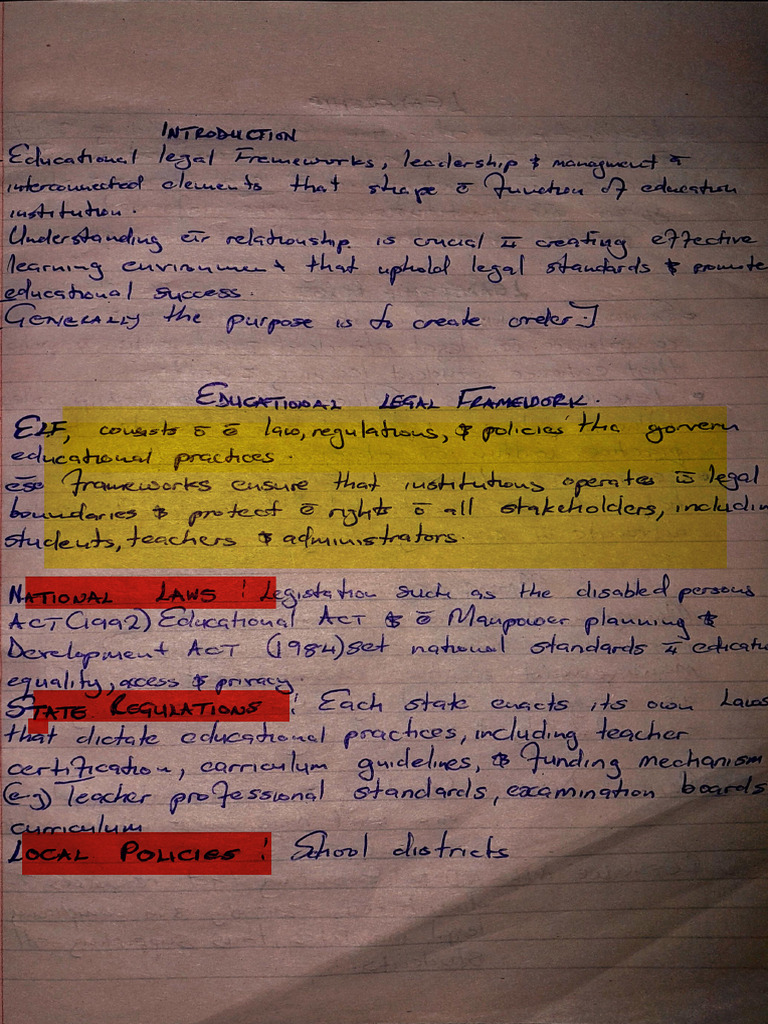 INTRODUCTION
Educational legal Frameworks, leadership & managment a̅
interconnected elements that shape o̅ function of education
institution.
Understanding e̅ir relationship is crucial i̅ creating effective
learning environment that uphold legal standards & promote
educational success.
GENERALLY the purpose is to create order.]
EDUCATIONAL LEGAL FRAMEWORK.
ELF, consists o̅ e̅ law, regulations, & policies tha gorvern
educational practices.
e̅se Frameworks ensure that institutions operates w̅ legal
boundaries & protect e̅ rights o̅ all stakeholders, includin
students, teachers & administrators.
NATIONAL LAWS: Legistation such as the disabled persons
ACT (1992) Educational ACT & e̅ Manpower planning &
Development ACT (1984) set national standards i̅ educatio
equality, access & privacy.
STATE REGULATIONS: Each state enacts its own Laws
that dictate educational practices, including teacher
certification, carriculum guidelines, & Funding mechanism
(e.g) Teacher professional standards, examination boards
curriculum
LOCAL POLICIES: School districts